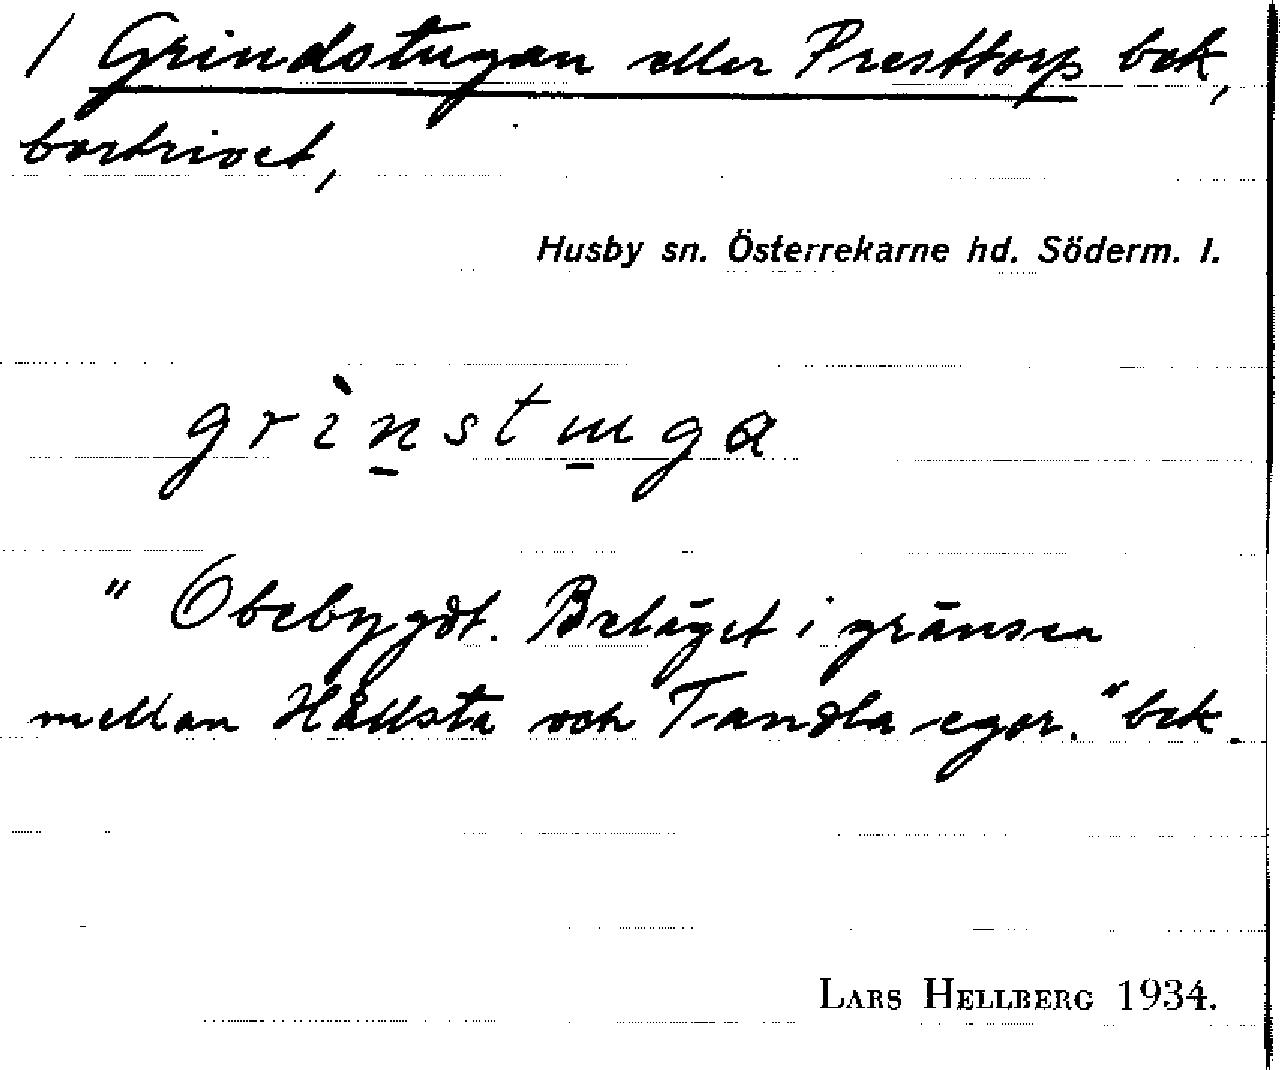 / Grindstugan eller Presttorp bek,
bortrivet,
Husby sn. Österrekarne hd. Söderm. l.
grìn̲stu̲ga
" Obebygdt. Beläget i gränsen
mellan Hållsta och Tandla egor." bek.
LARS HELLBERG 1934.